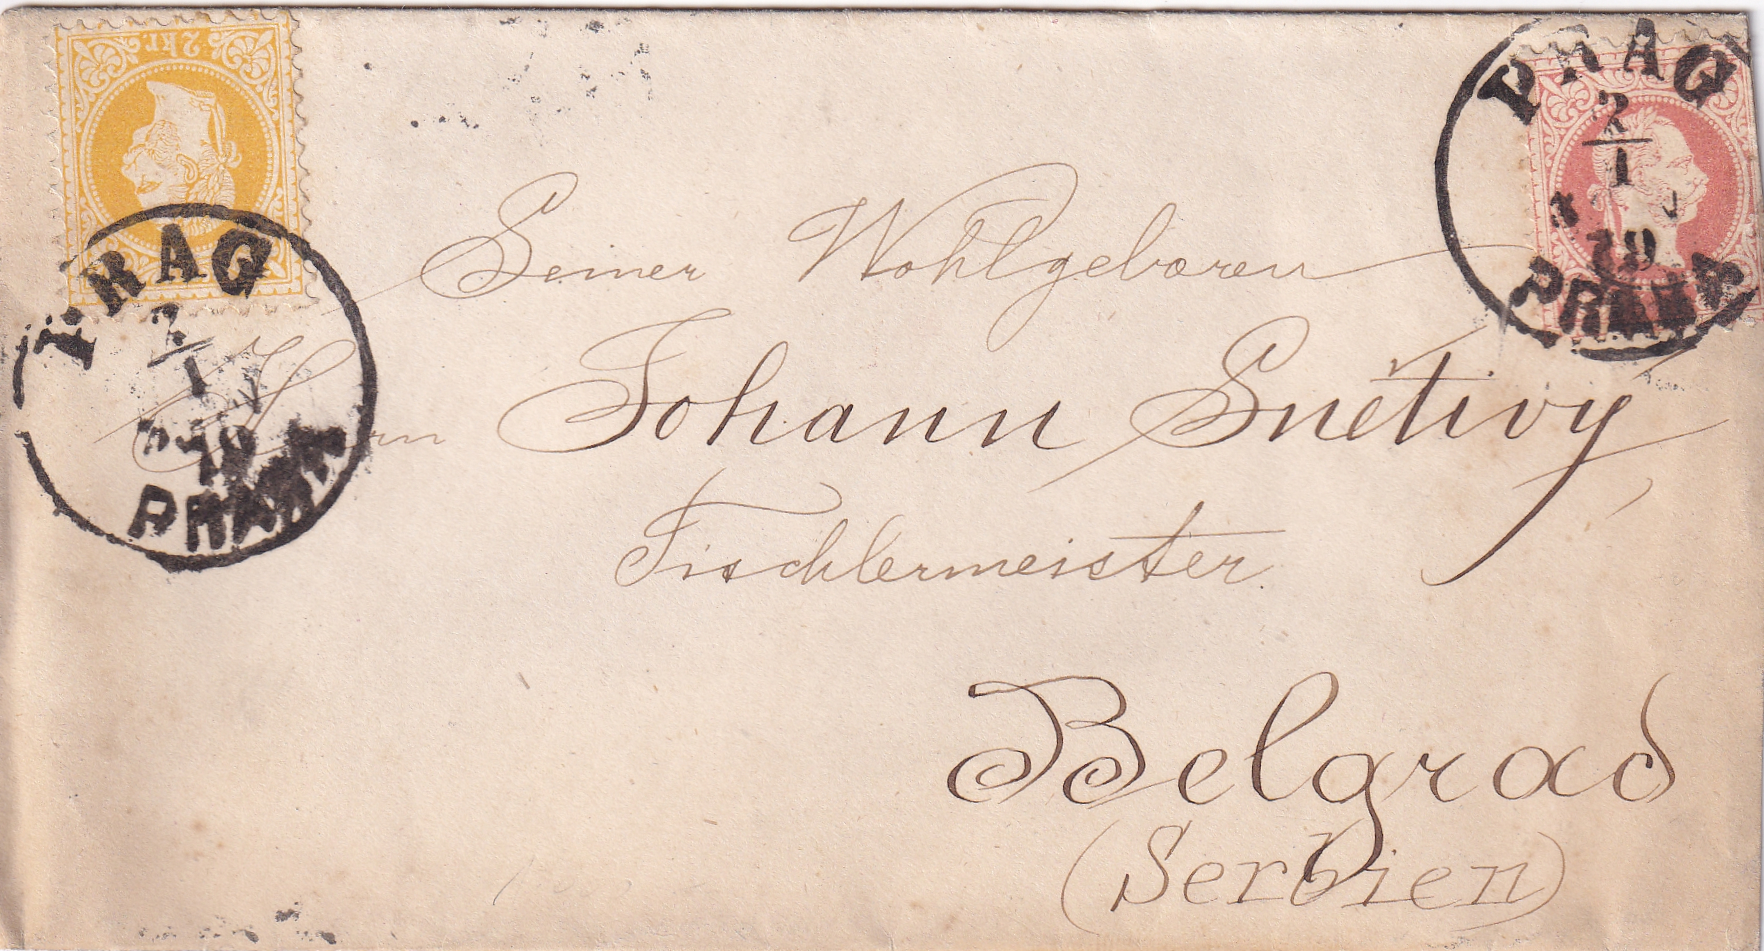 2 kr.
PRAG
2
1
79
PRAHA
PRAG
2
1
79
PRAHA
Seiner Wohlgeboren
Herrn Johann Snětivy
Tischlermeister
Belgrad
(Serbien)